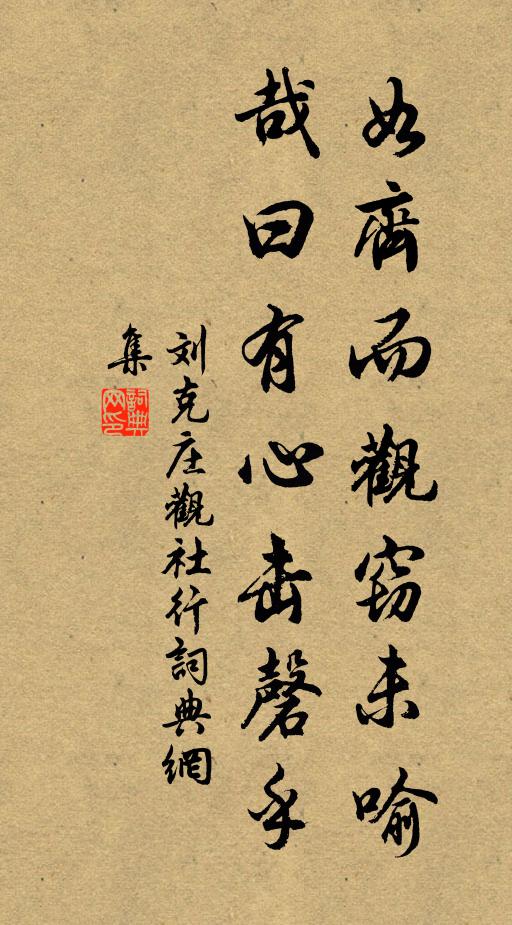 如齊而觀窃未喻
哉曰有心击磬乎
刘克庄觀社行詞典網
集
詞典网印